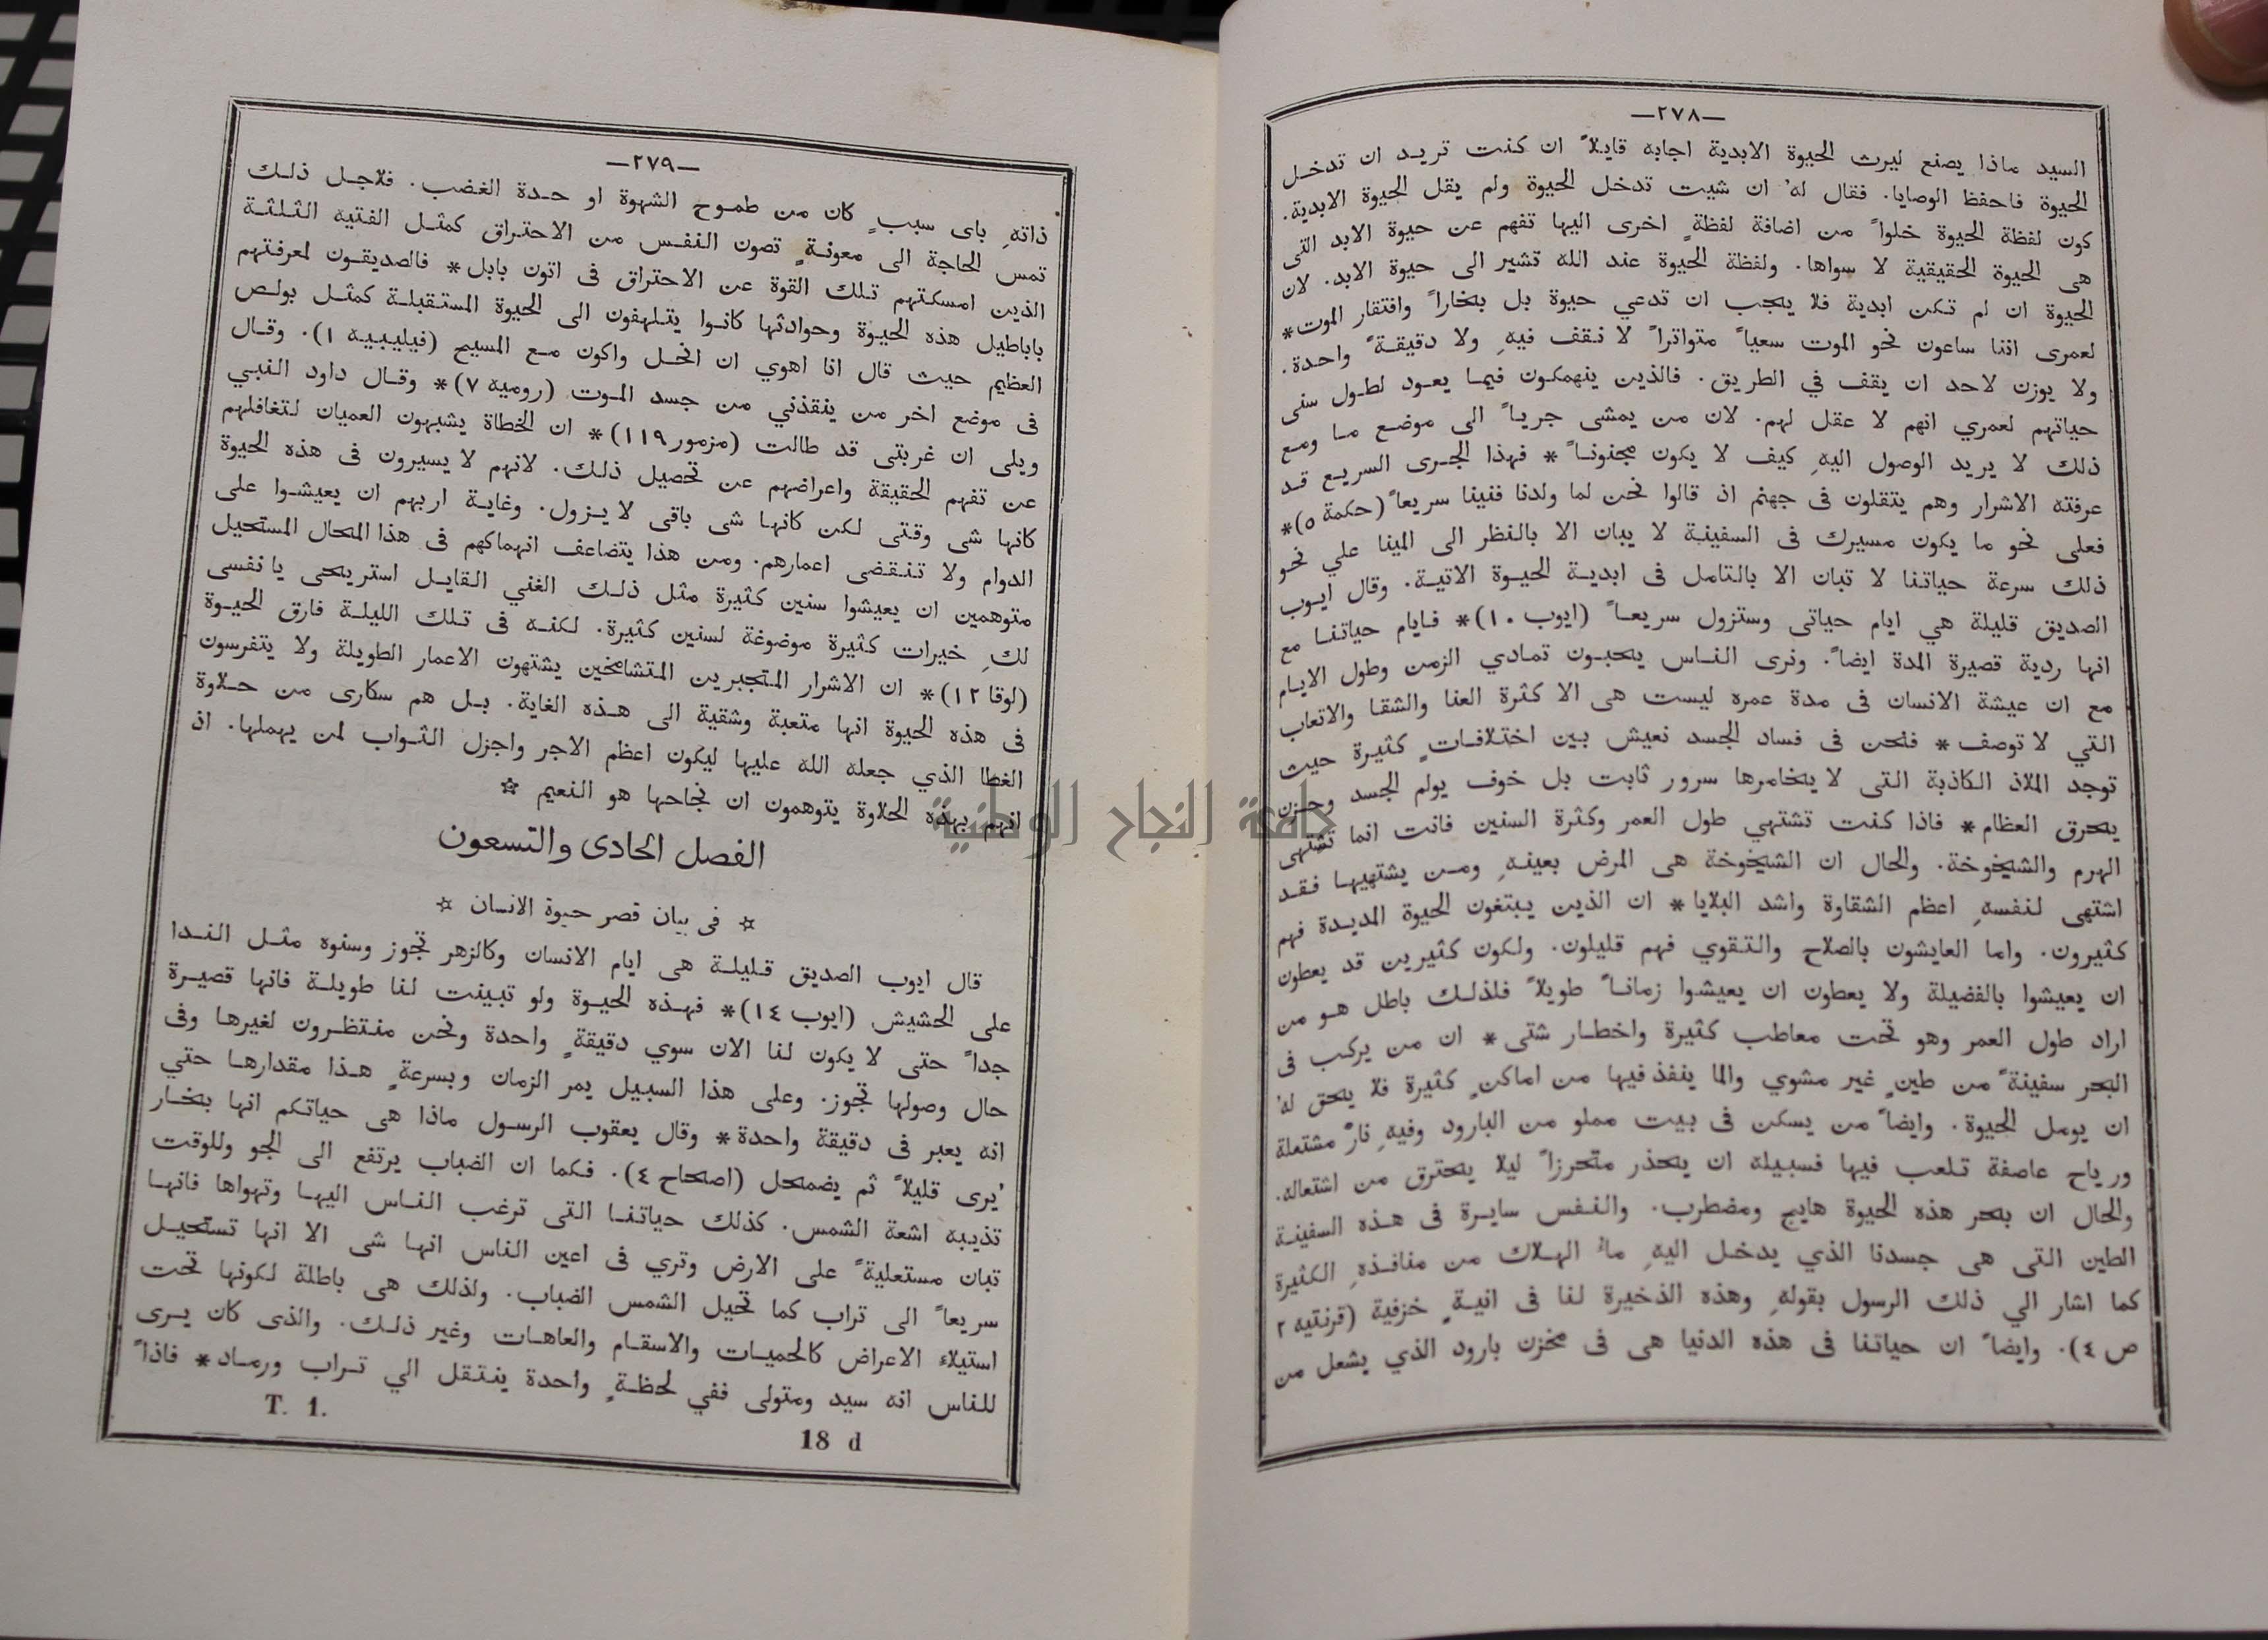 —٢٧٨—
السيد ماذا يصنع ليرث الحيوة الابدية اجابه قايلاً ان كنت تريد ان تدخل
الحيوة فاحفظ الوصايا. فقال له ان شيت تدخل الحيوة ولم يقل الحيوة الابدية.
كون لفظة الحيوة خلواً من اضافة لفظةٍ اخرى اليها تفهم عن حيوة الابد التى
هى الحيوة الحقيقية لا سواها. ولفظة الحيوة عند الله تشير الى حيوة الابد. لان
الحيوة ان لم تكن ابدية فلا يجب ان تدعي حيوة بل بخاراً وافتقار الموت*
لعمرى اننا ساعون نحو الموت سعياً متواتراً لا نقف فيهِ ولا دقيقةً واحدة.
ولا يوزن لاحد ان يقف في الطريق. فالذين ينهمكون فيما يعود لطول سنى
حياتهم لعمري انهم لا عقل لهم. لان من يمشى جرياً الى موضع ما ومع
ذلك لا يريد الوصول اليهِ كيف لا يكون مجنوناً* فهذا الجرى السريع قد
عرفته الاشرار وهم يتقلون فى جهنم اذ قالوا نحن لما ولدنا فنينا سريعاً (حكمة ٥)*
فعلى نحو ما يكون مسيرك فى السفينة لا يبان الا بالنظر الى المينا علي نحو
ذلك سرعة حياتنا لا تبان الا بالتامل فى ابدية الحيوة الاتية. وقال ايوب
الصديق قليلة هي ايام حياتى وستزول سريعاً (ايوب ١٠)* فايام حياتنا مع
انها ردية قصيرة المدة ايضاً. ونرى الناس يحبون تمادي الزمن وطول الايام
مع ان عيشة الانسان فى مدة عمره ليست هى الا كثرة العنا والشقا والاتعاب
التي لا توصف* فنحن فى فساد الجسد نعيش بين اختلافاتٍ كثيرة حيث
توجد الملاذ الكاذبة التى لا يخامرها سرور ثابت بل خوف يولم الجسد وحزن
يحرق العظام* فاذا كنت تشتهي طول العمر وكثرة السنين فانت انما تشتهى
الهرم والشيخوخة. والحال ان الشيخوخة هى المرض بعينهِ ومن يشتهيها فقد
اشتهى لنفسهِ اعظم الشقاوة واشد البلايا* ان الذين يبتغون الحيوة المديدة فهم
كثيرون. واما العايشون بالصلاح والتقوي فهم قليلون. ولكون كثيرين قد يعطون
ان يعيشوا بالفضيلة ولا يعطون ان يعيشوا زماناً طويلاً فلذلك باطل هو من
اراد طول العمر وهو تحت معاطب كثيرة واخطار شتى* ان من يركب فى
البحر سفينةً من طينٍ غير مشوي والما ينفذ فيها من اماكنٍ كثيرة فلا يحق له
ان يومل الحيوة. وايضاً من يسكن فى بيت مملو من البارود وفيهِ نارٌ مشتعلة
ورياح عاصفة تلعب فيها فسبيله ان يحذر متحرزاً ليلا يحترق من اشتعاله.
والحال ان بحر هذه الحيوة هايج ومضطرب. والنفس سايرة فى هذه السفينة
الطين التى هى جسدنا الذي يدخل اليهِ ماءُ الهلاك من منافذهِ الكثيرة
كما اشار الي ذلك الرسول بقولهِ وهذه الذخيرة لنا فى انيةٍ خزفية (قرنتيه ٢
ص ٤). وايضاً ان حياتنا فى هذه الدنيا هى فى مخزن بارود الذي يشعل من
—٢٧٩—
ذاتهِ باى سببٍ كان من طموح الشهوة او حدة الغضب. فلاجل ذلك
تمس الحاجة الى معونةٍ تصون النفس من الاحتراق كمثل الفتيه الثلثة
الذين امسكتهم تلك القوة عن الاحتراق فى اتون بابل* فالصديقون لمعرفتهم
باباطيل هذه الحيوة وحوادثها كانوا يتلهفون الى الحيوة المستقبلة كمثل بولص
العظيم حيث قال انا اهوي ان انحل واكون مع المسيح (فيليبيه ١). وقال
فى موضع اخر من ينقذني من جسد الموت (روميه ٧)* وقال داود النبي
ويلى ان غربتى قد طالت (مزمور ١١٩)* ان الخطاة يشبهون العميان لتغافلهم
عن تفهم الحقيقة واعراضهم عن تحصيل ذلك. لانهم لا يسيرون فى هذه الحيوة
كانها شى وقتى لكن كانها شى باقى لا يزول. وغاية اربهم ان يعيشوا على
الدوام ولا تنقضى اعمارهم. ومن هذا يتضاعف انهماكهم فى هذا المحال المستحيل
متوهمين ان يعيشوا سنين كثيرة مثل ذلك الغني القايل استريحى يا نفسى
لكِ خيرات كثيرة موضوغة لسنين كثيرة. لكنه فى تلك الليلة فارق الحيوة
(لوقا ١٢)* ان الاشرار المتجبرين المتشامخين يشتهون الاعمار الطويلة ولا يتفرسون
فى هذه الحيوة انها متعبة وشقية الى هذه الغاية. بل هم سكارى من حلاوة
الغطا الذي جعله الله عليها ليكون اعظم الاجر واجزل الثواب لمن يهملها. اذ
انهم بهذه الحلاوة يتوهمون ان نجاحها هو النعيم ☆
الفصل الحادى والتسعون
☆ فى بيان قصر حيوة الانسان ☆
قال ايوب الصديق قليلة هى ايام الانسان وكالزهر تجوز وسنوه مثل الندا
على الحشيش (ايوب ١٤)* فهذه الحيوة ولو تبينت لنا طويلة فانها قصيرة
جداً حتى لا يكون لنا الان سوي دقيقةٍ واحدة ونحن منتظرون لغيرها وفى
حال وصولها تجوز. وعلى هذا السبيل يمر الزمان وبسرعةٍ هذا مقدارها حتي
انه يعبر فى دقيقة واحدة* وقال يعقوب الرسول ماذا هى حياتكم انها بخار
يُرى قليلاً ثم يضمحل (اصحاح ٤). فكما ان الضباب يرتفع الى الجو وللوقت
تذيبه اشعة الشمس. كذلك حياتنا التى ترغب الناس اليها وتهواها فانها
تبان مستعليةً على الارض وتري فى اعين الناس انها شى الا انها تستحيل
سريعاً الى تراب كما تحيل الشمس الضباب. ولذلك هى باطلة لكونها تحت
استيلاء الاعراض كالحميات والاسقام والعاهات وغير ذلك. والذى كان يرى
للناس انه سيد ومتولى ففي لحظةٍ واحدة ينتقل الي تراب ورماد* فاذاً
T. 1.
18 d
جامعة النجاح الوطنية